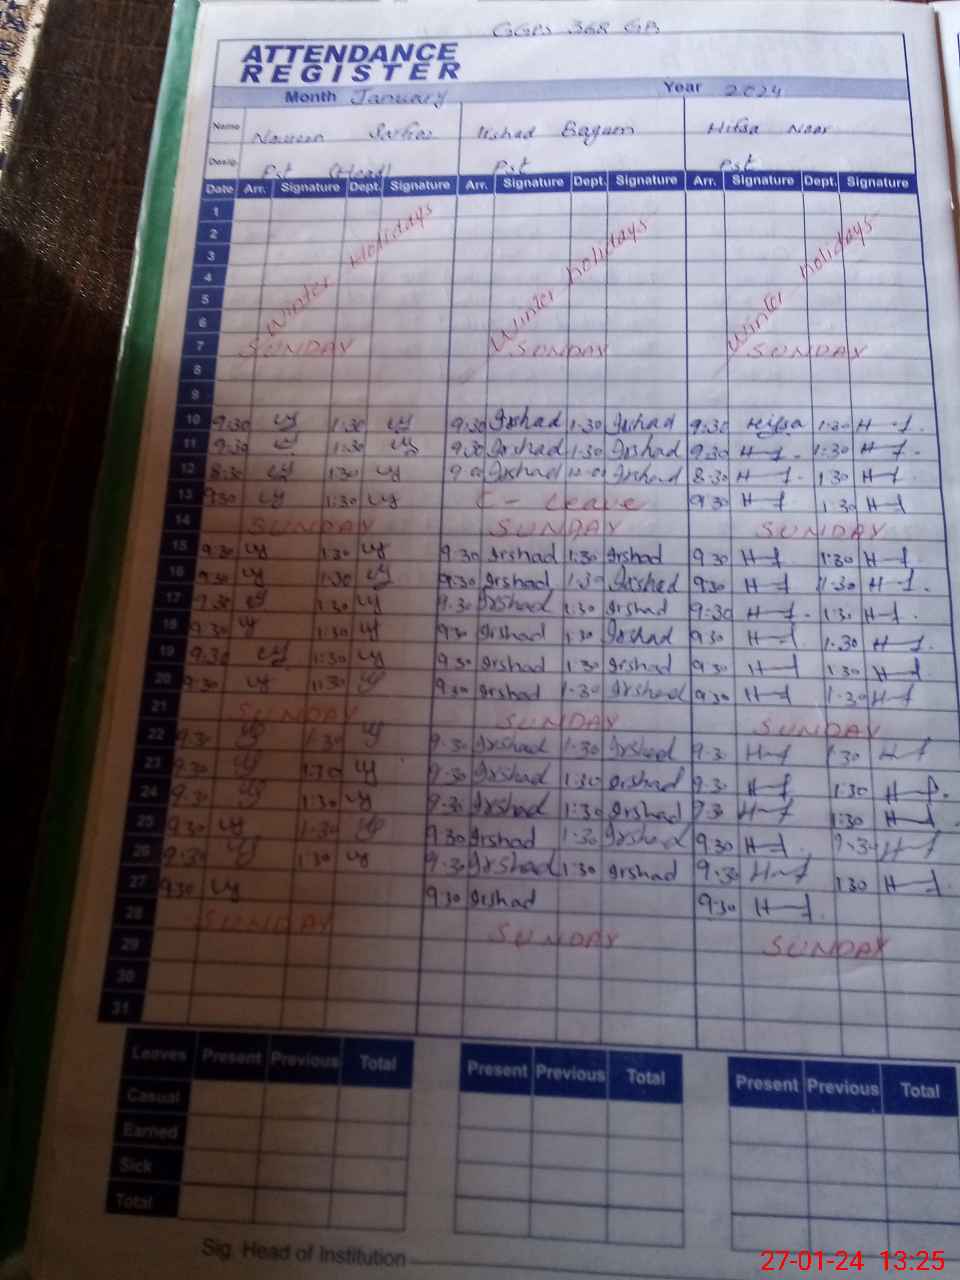 GGPS 368 GB
ATTENDANCE
REGISTER
Month January Year 2024
Name Irshad Begum Hifsa Noor
Desig. Pst (Head) Pst Pst
Date Arr. Signature Dept. Signature Arr. Signature Dept. Signature Arr. Signature Dept. Signature
1
2
3
4
5
6
Winter Holidays Winter holidays Winter holidays
7 SUNDAY SUNDAY SUNDAY
8
9
10 9:30 1:30 9:30 Irshad 1:30 Irshad 9:30 Hifsa 1:30
11 9:30 1:30 9:30 Irshad 1:30 Irshad 9:30 1:30
12 8:30 1:30 9:00 Irshad Irshad 8:30 1:30
13 9:30 1:30 C - Leave 9:30 1:30
14 SUNDAY SUNDAY SUNDAY
15 9:30 1:30 9:30 Irshad 1:30 Irshad 9:30 1:30
16 9:30 1:30 9:30 Irshad 1:30 Irshad 9:30 1:30
17 9:30 1:30 9:30 Irshad 1:30 Irshad 9:30 1:30
18 9:30 1:30 9:30 Irshad 1:30 Irshad 9:30 1:30
19 9:30 1:30 9:30 Irshad 1:30 Irshad 9:30 1:30
20 9:30 1:30 9:30 Irshad 1:30 Irshad 9:30 1:30
21 SUNDAY SUNDAY SUNDAY
22 9:30 1:30 9:30 Irshad 1:30 Irshad 9:30 1:30
23 9:30 1:30 9:30 Irshad 1:30 Irshad 9:30 1:30
24 9:30 1:30 9:30 Irshad 1:30 Irshad 9:30 1:30
25 9:30 1:30 9:30 Irshad 1:30 Irshad 9:30
26 9:30 1:30 9:30 Irshad 1:30 Irshad 9:30 1:30
27 9:30 9:30 Irshad 9:30
28 SUNDAY SUNDAY SUNDAY
29
30
31
Leaves Present Previous Total Present Previous Total Present Previous Total
Casual
Earned
Sick
Total
Sig. Head of Institution
27-01-24 13:25